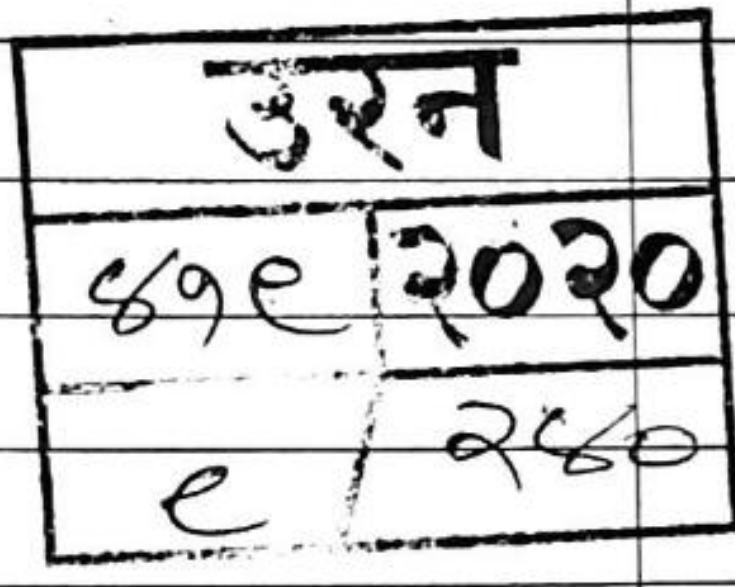 उरन
४१९ २०२०
९ २४०